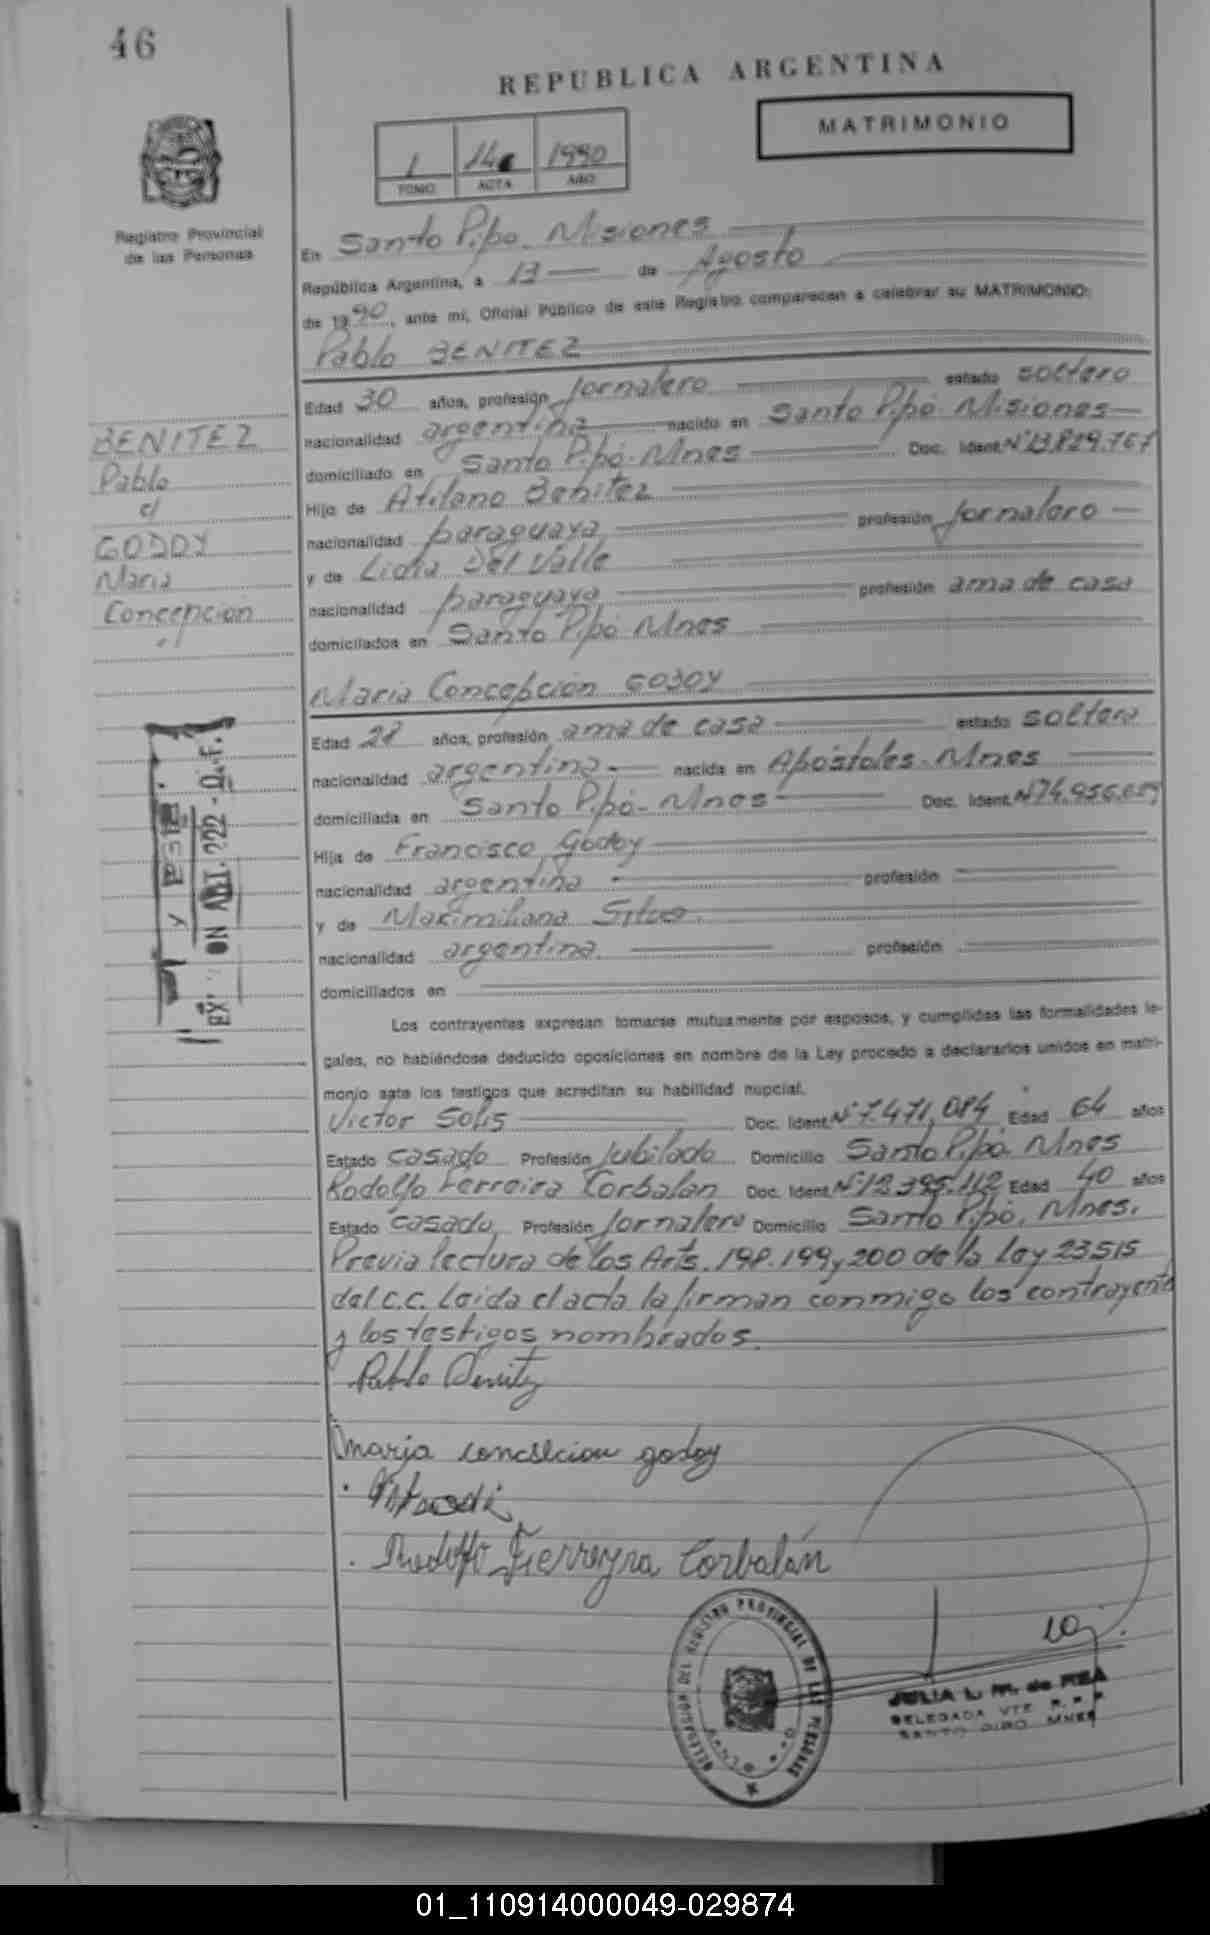 46
REPUBLICA ARGENTINA
MATRIMONIO
1 14 1990
TOMO ACTA AÑO
Registro Provincial
de las Personas
En Santo Pipo Misiones
República Argentina, a 13 de Agosto
de 1990, ante mí, Oficial Público de este Registro comparecen a celebrar su MATRIMONIO:
Pablo BENITEZ
Edad 30 años, profesión Jornalero estado soltero
nacionalidad argentina nacido en Santo Pipó Misiones
domiciliado en Santo Pipó-Mnes Doc. Ident. Nº 13.829.767
Hijo de Atilano Benitez
nacionalidad paraguaya profesión Jornalero
y de Lidia Del Valle
nacionalidad paraguaya profesión ama de casa
domiciliados en Santo Pipó Mnes
BENITEZ
Pablo
c/
GODOY
Maria
Concepcion
Maria Concepción GODOY
Edad 28 años, profesión ama de casa estado soltera
nacionalidad argentina nacida en Apóstoles-Mnes
domiciliada en Santo Pipó-Mnes Doc. Ident. Nº
Hija de Francisco Godoy
nacionalidad argentina profesión
y de Maximiliana
nacionalidad argentina profesión
domiciliados en
Los contrayentes expresan tomarse mutuamente por esposos, y cumplidas las formalidades le-
gales, no habiéndose deducido oposiciones en nombre de la Ley procedo a declararlos unidos en matri-
monio ante los testigos que acreditan su habilidad nupcial.
Victor Solis Doc. Ident. Nº 7.471.084 Edad 64 años
Estado casado Profesión Jubilado Domicilio Santo Pipó. Mnes
Rodolfo Ferreira Corbalan Doc. Ident. Nº 12.395.112 Edad 40 años
Estado casado Profesión Jornalero Domicilio Santo Pipó. Mnes.
Previa lectura de los Arts. 198.199 y 200 de la ley 23515
del C.C. Leida el acta la firman conmigo los contrayente
y los testigos nombrados.
Pablo Benitez
maria concecion godoy
Rodolfo Fierreyra Corbalán
DELEGACION DEL REGISTRO PROVINCIAL DE LAS PERSONAS
SANTO PIPO
JULIA L. M. de REA
DELEGADA VTE R. P. P.
SANTO PIPO MNES
01_110914000049-029874